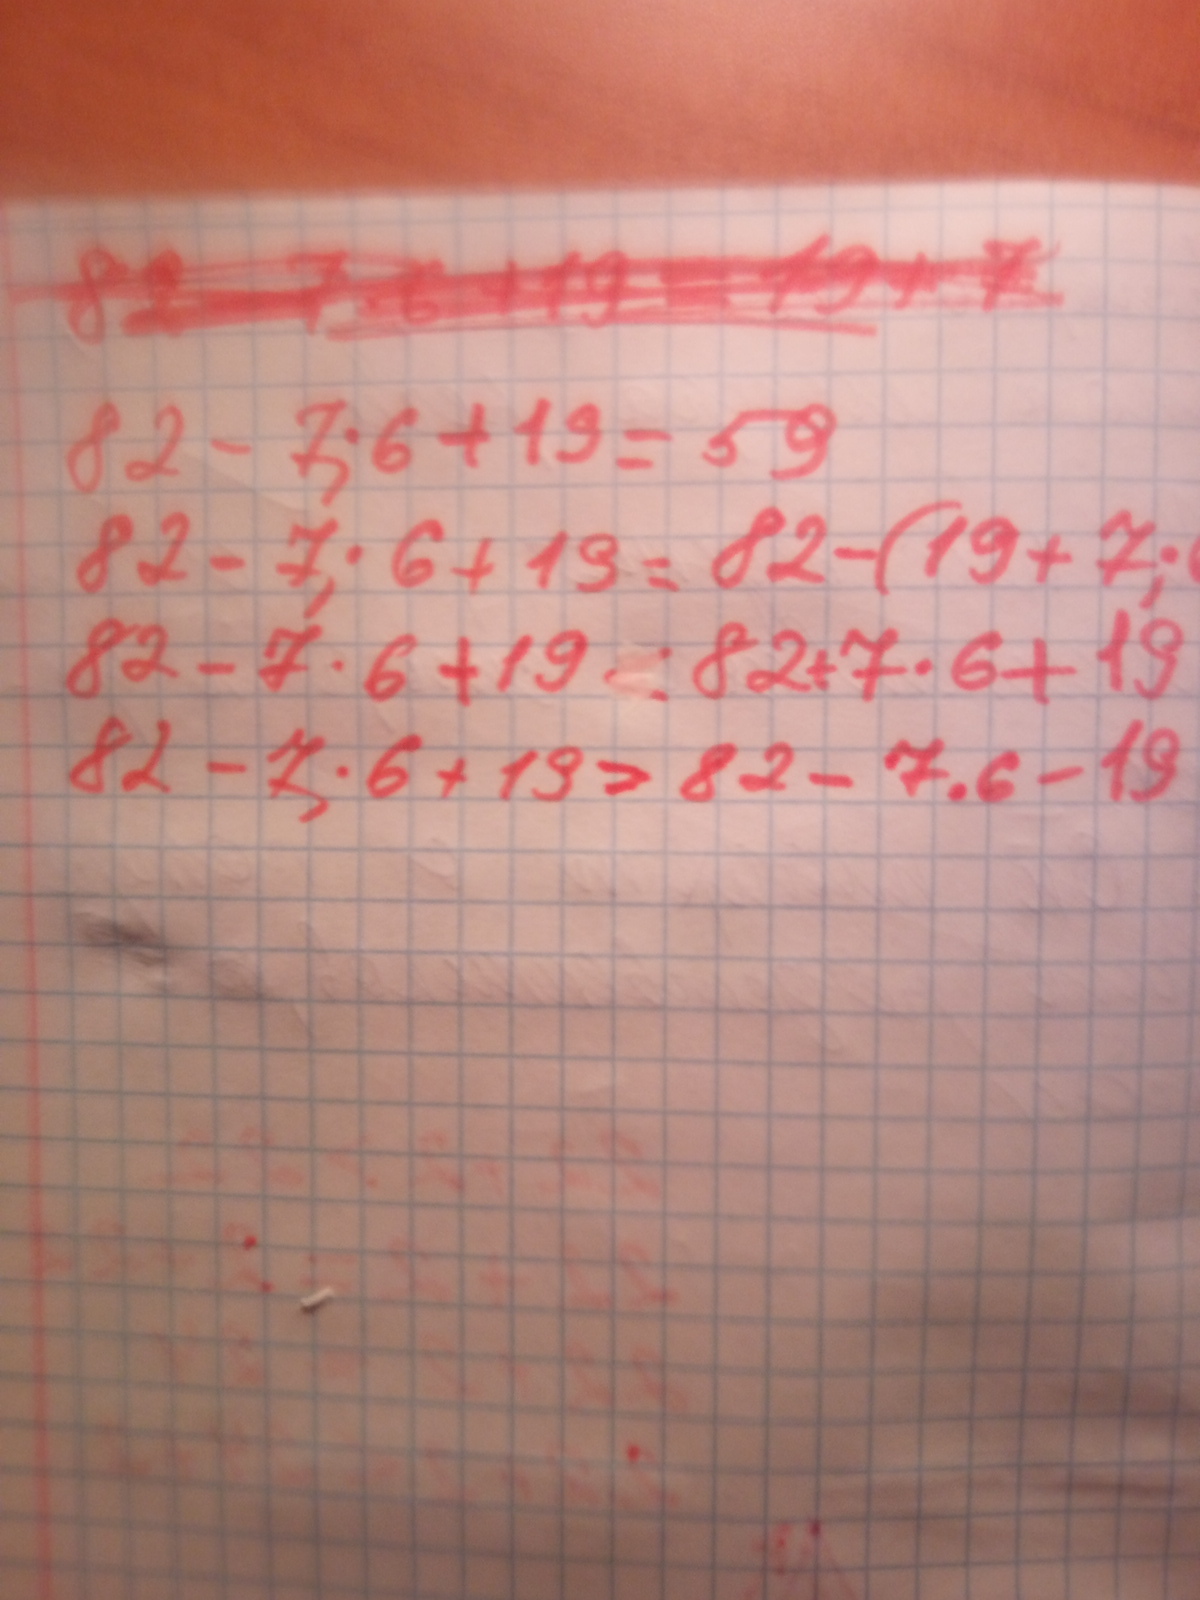 82 - 7 · 6 + 19 = 19 + 7
82 - 7 · 6 + 19 = 59
82 - 7 · 6 + 19 = 82 - (19 + 7 · 6
82 - 7 · 6 + 19 < 82 + 7 · 6 + 19
82 - 7 · 6 + 19 > 82 - 7 . 6 - 19